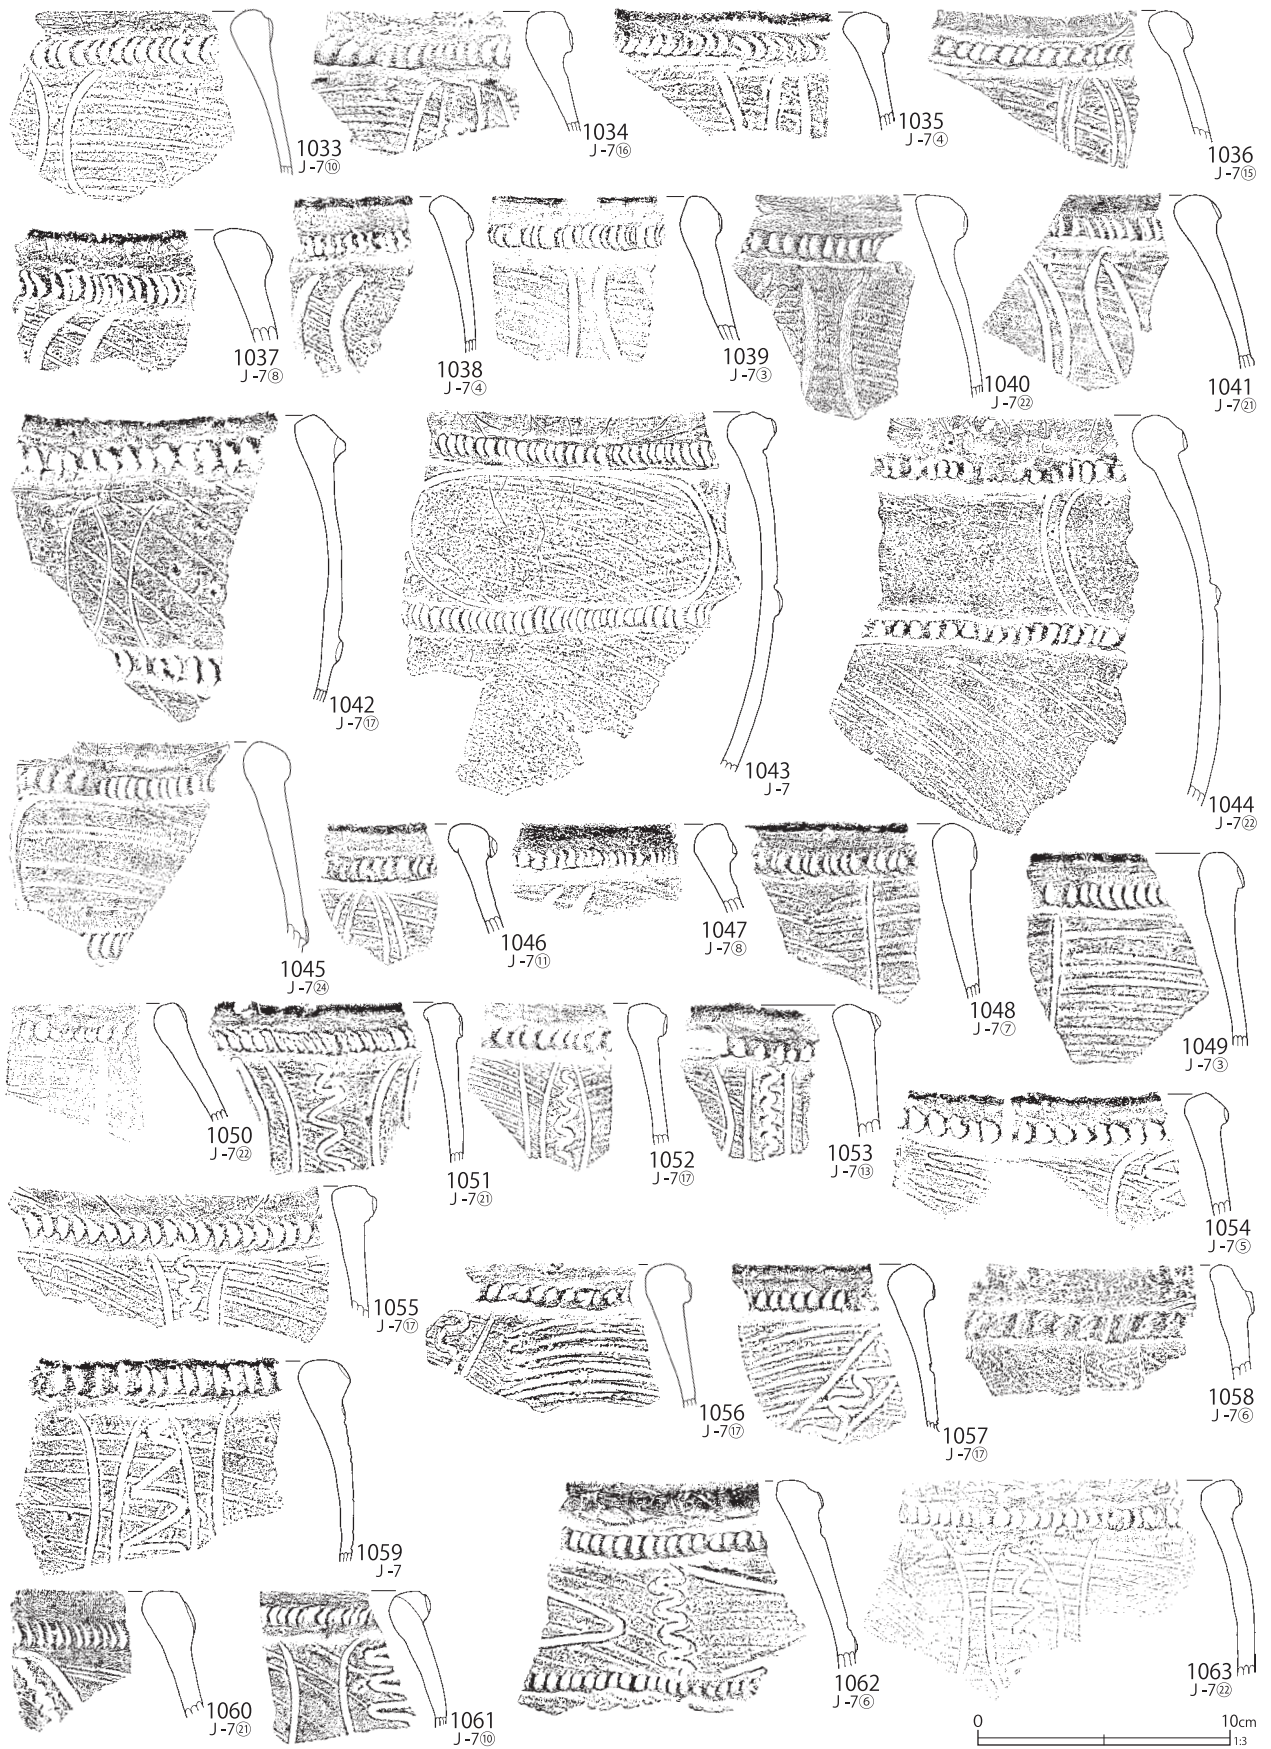 1033
J-7⑩
1034
J-7⑯
1035
J-7④
1036
J-7⑮
1037
J-7⑧
1038
J-7④
1039
J-7③
1040
J-7㉒
1041
J-7㉑
1042
J-7⑰
1043
J-7
1044
J-7㉒
1045
J-7㉔
1046
J-7⑪
1047
J-7⑧
1048
J-7⑦
1049
J-7③
1050
J-7㉒
1051
J-7㉑
1052
J-7⑰
1053
J-7⑬
1054
J-7⑤
1055
J-7⑰
1056
J-7⑰
1057
J-7⑰
1058
J-7⑥
1059
J-7
1060
J-7㉑
1061
J-7⑩
1062
J-7⑥
1063
J-7㉒
0 10cm
1:3